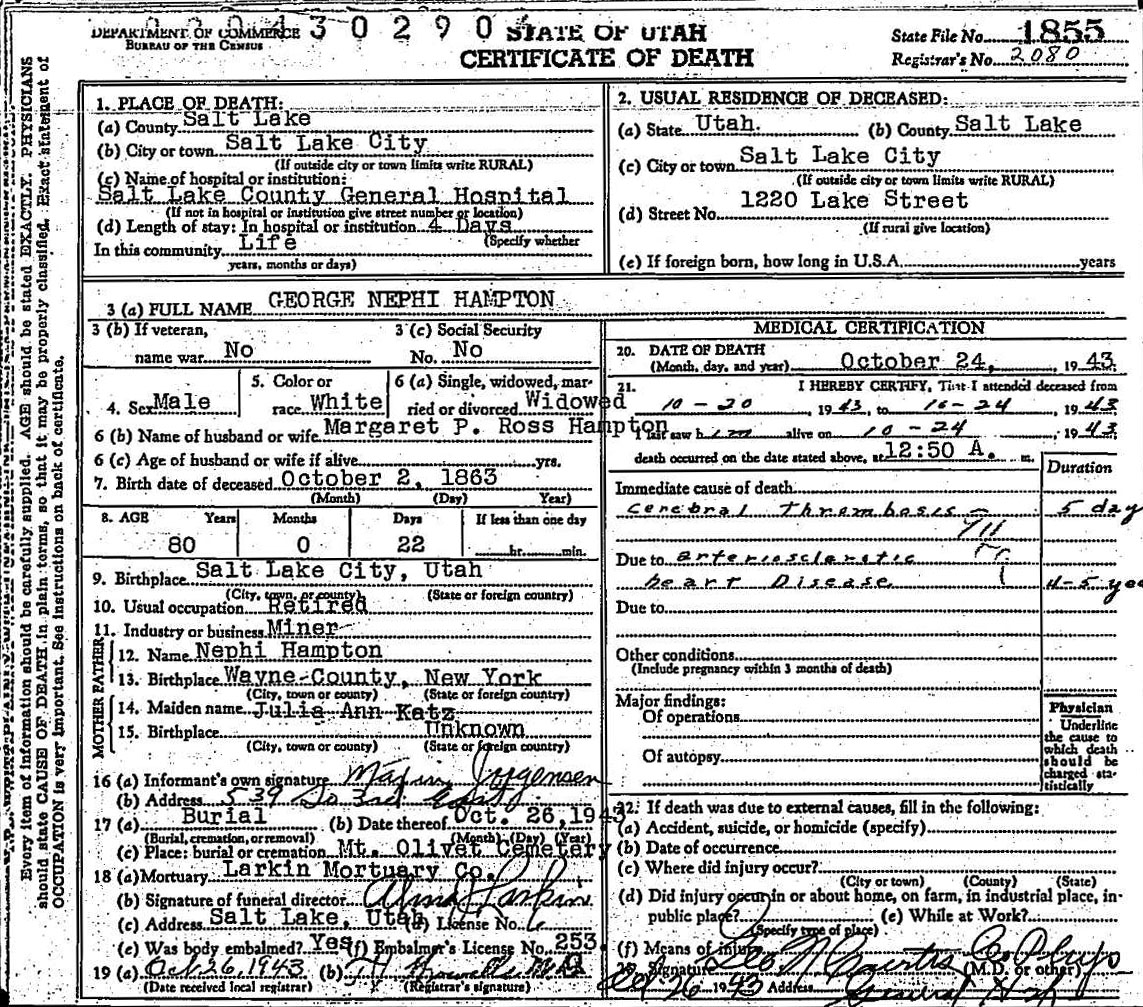 DEPARTMENT OF COMMERCE
BUREAU OF THE CENSUS
STATE OF UTAH
CERTIFICATE OF DEATH
State File No. 1855
Registrar's No. 2080
Every item of information should be carefully supplied. AGE should be stated EXACTLY. PHYSICIANS
should state CAUSE OF DEATH in plain terms, so that it may be properly classified. Exact statement of
OCCUPATION is very important. See instructions on back of certificate.
1. PLACE OF DEATH:
(a) County Salt Lake
(b) City or town Salt Lake City
(If outside city or town limits write RURAL)
(c) Name of hospital or institution:
Salt Lake County General Hospital
(If not in hospital or institution give street number or location)
(d) Length of stay: In hospital or institution 4 Days
(Specify whether
In this community Life
years, months or days)
2. USUAL RESIDENCE OF DECEASED:
(a) State Utah. (b) County Salt Lake
(c) City or town Salt Lake City
(If outside city or town limits write RURAL)
(d) Street No. 1220 Lake Street
(If rural give location)
(e) If foreign born, how long in U.S.A. years
3 (a) FULL NAME GEORGE NEPHI HAMPTON
3 (b) If veteran, name war No
3 (c) Social Security No. No
4. Sex Male
5. Color or race White
6 (a) Single, widowed, married or divorced Widowed
6 (b) Name of husband or wife Margaret P. Ross Hampton
6 (c) Age of husband or wife if alive yrs.
7. Birth date of deceased October 2, 1863
(Month) (Day) Year)
8. AGE Years Months Days If less than one day
80 0 22 hr. min.
9. Birthplace Salt Lake City, Utah
(City, town, or county) (State or foreign country)
10. Usual occupation Retired
11. Industry or business Miner
FATHER
12. Name Nephi Hampton
13. Birthplace Wayne County, New York
(City, town or county) (State or foreign country)
MOTHER
14. Maiden name Julia Ann Katz
15. Birthplace Unknown
(City, town or county) (State or foreign country)
16 (a) Informant's own signature Jorgensen
(b) Address 539 So 3rd East
17 (a) Burial (b) Date thereof Oct. 26, 1943
(Burial, cremation, or removal) (Month) (Day) (Year)
(c) Place: burial or cremation Mt. Olivet Cemetery
18 (a) Mortuary Larkin Mortuary Co.
(b) Signature of funeral director Larkin
(c) Address Salt Lake, Utah (d) License No.
(e) Was body embalmed? Yes (f) Embalmer's License No. 253
19 (a) Oct 26, 1943 (b)
(Date received local registrar) (Registrar's signature)
MEDICAL CERTIFICATION
20. DATE OF DEATH
(Month, day, and year) October 24, 1943
21. I HEREBY CERTIFY, That I attended deceased from
10-20, 1943, to 10-24 1943
I last saw him alive on 10-24 1943
death occurred on the date stated above, at 12:50 A. m.
Duration
Immediate cause of death
cerebral thrombosis 5 day
Due to arteriosclerotic
heart Disease 4-5 yea
Due to
Other conditions
(Include pregnancy within 3 months of death)
Major findings:
Of operations
Of autopsy
Physician
Underline
the cause to
which death
should be
charged sta-
tistically
22. If death was due to external causes, fill in the following:
(a) Accident, suicide, or homicide (specify)
(b) Date of occurrence
(c) Where did injury occur?
(City or town) (County) (State)
(d) Did injury occur in or about home, on farm, in industrial place, in-
public place? (e) While at Work?
(Specify type of place)
(f) Means of injury
Signature (M.D. or other)
26 1943 Address General